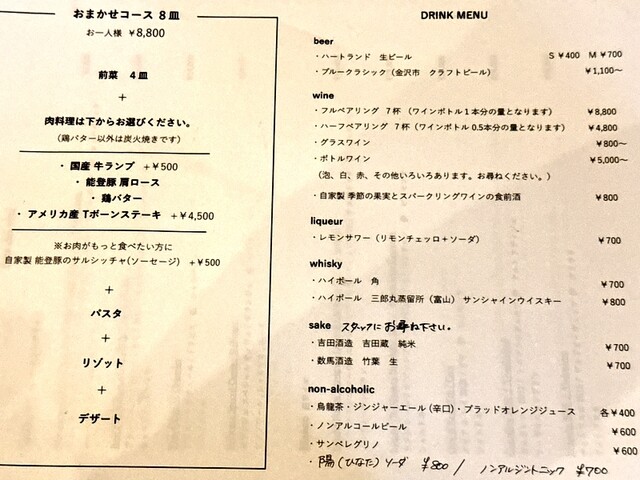 おまかせコース 8皿
お一人様 ¥8,800
前菜 4皿
+
肉料理は下からお選びください。
（鶏バター以外は炭火焼きです）
・国産 牛ランプ +¥500
・能登豚 肩ロース
・鶏バター
・アメリカ産 Tボーンステーキ +¥4,500
※お肉がもっと食べたい方に
自家製 能登豚のサルシッチャ(ソーセージ) +¥500
+
パスタ
+
リゾット
+
デザート
DRINK MENU
beer
・ハートランド 生ビール S ¥400 M ¥700
・ブルークラシック（金沢市 クラフトビール） ¥1,100〜
wine
・フルペアリング 7杯（ワインボトル1本分の量となります） ¥8,800
・ハーフペアリング 7杯（ワインボトル0.5本分の量となります） ¥4,800
・グラスワイン ¥800〜
・ボトルワイン ¥5,000〜
（泡、白、赤、その他いろいろあります。お尋ねください。）
・自家製 季節の果実とスパークリングワインの食前酒 ¥800
liqueur
・レモンサワー（リモンチェッロ＋ソーダ） ¥700
whisky
・ハイボール 角 ¥700
・ハイボール 三郎丸蒸留所（富山） サンシャインウイスキー ¥800
sake スタッフにお尋ね下さい。
・吉田酒造 吉田蔵 純米 ¥700
・数馬酒造 竹葉 生 ¥700
non-alcoholic
・烏龍茶・ジンジャーエール(辛口)・ブラッドオレンジジュース 各¥400
・ノンアルコールビール ¥600
・サンペレグリノ ¥600
・陽(ひなた)ソーダ ¥800 / ノンアルジントニック ¥700